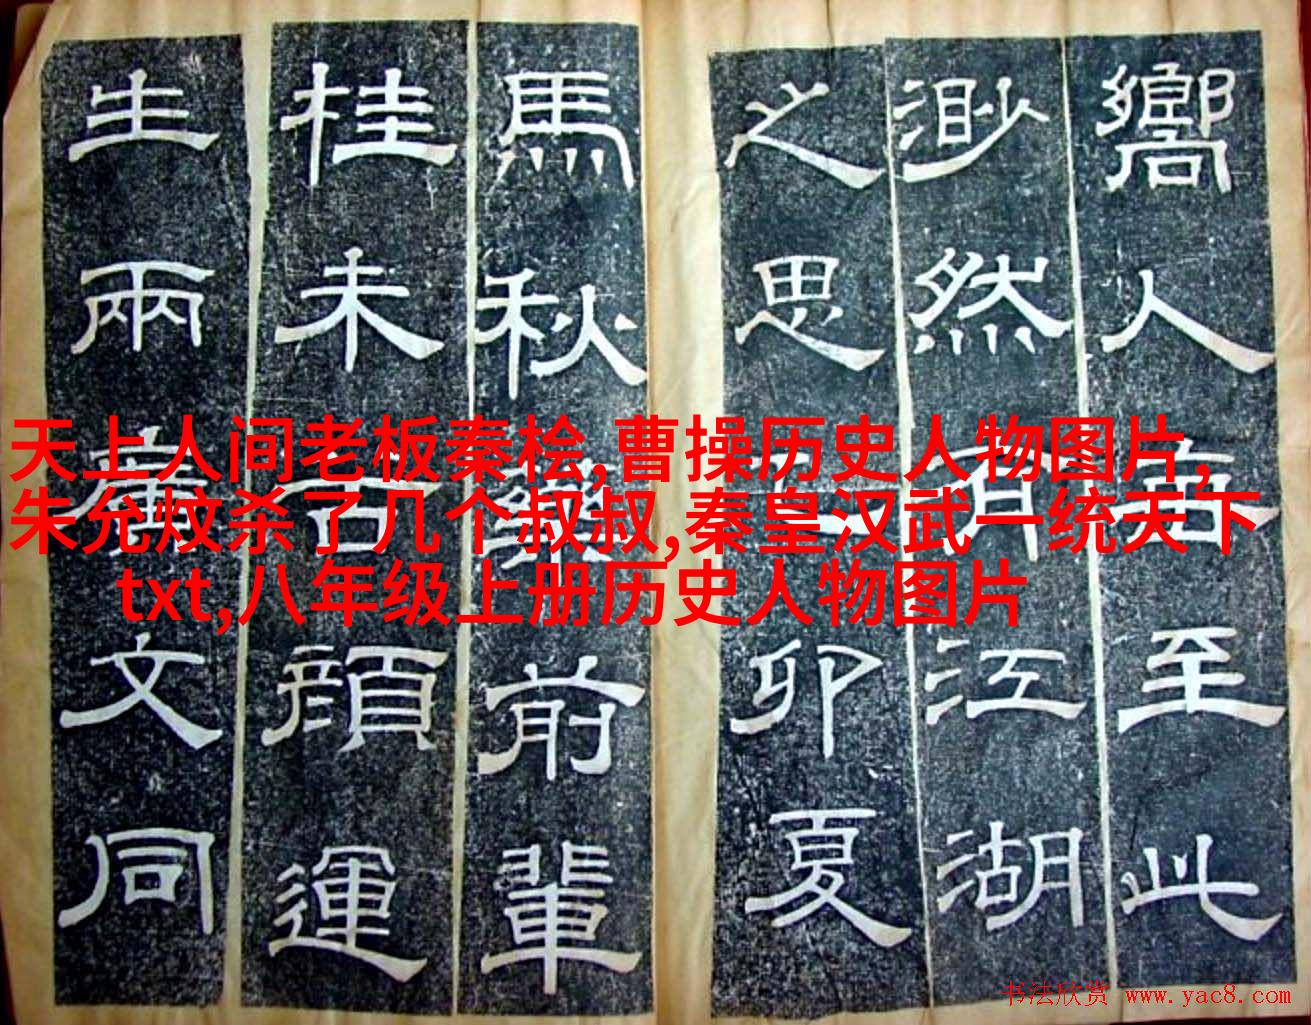 嚮人至此
渺然有江湖
之思卯夏
馬秋藥前輩
桂未谷顏運
生兩廣文同
天上人间老板秦桧,曹操历史人物图片,
朱允炆杀了几个叔叔,秦皇汉武一统天下
txt,八年级上册历史人物图片
书法欣赏 www.yac8.com